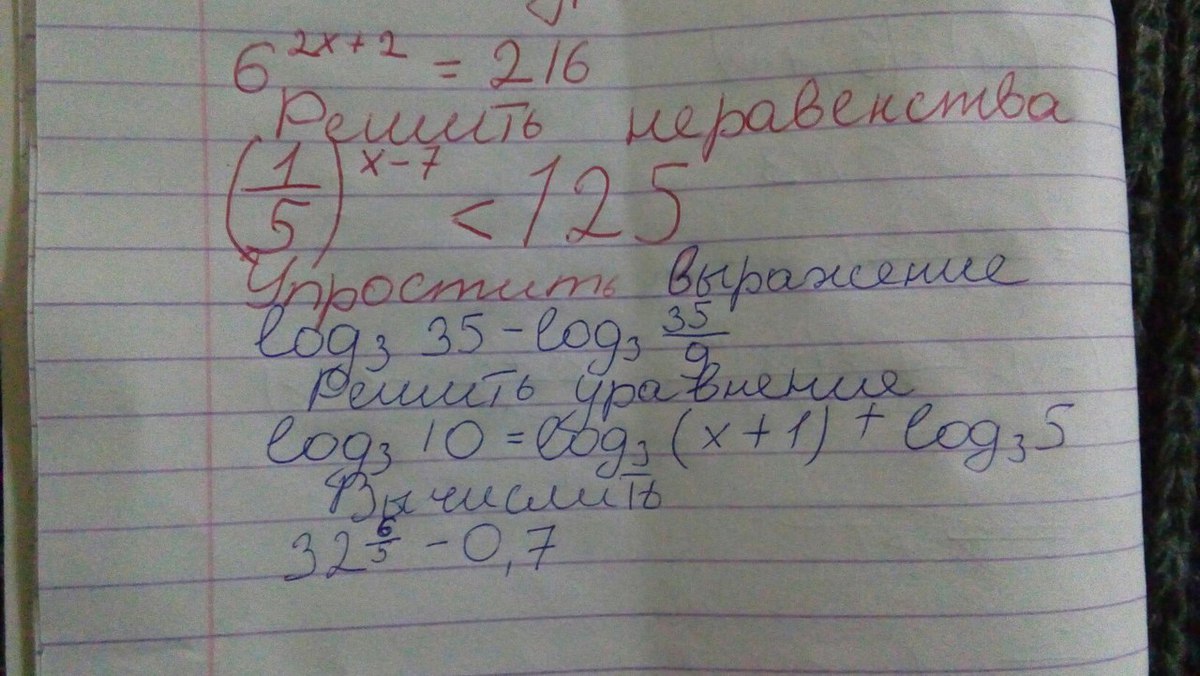 6^{2x+2} = 216
Решить неравенства
(1/5)^{x-7} < 125
Упростить выражение
log₃ 35 - log₃ 35/9
Решить уравнение
log₃ 10 = log₃ (x+1) + log₃ 5
Вычислить
32^{6/5} - 0,7